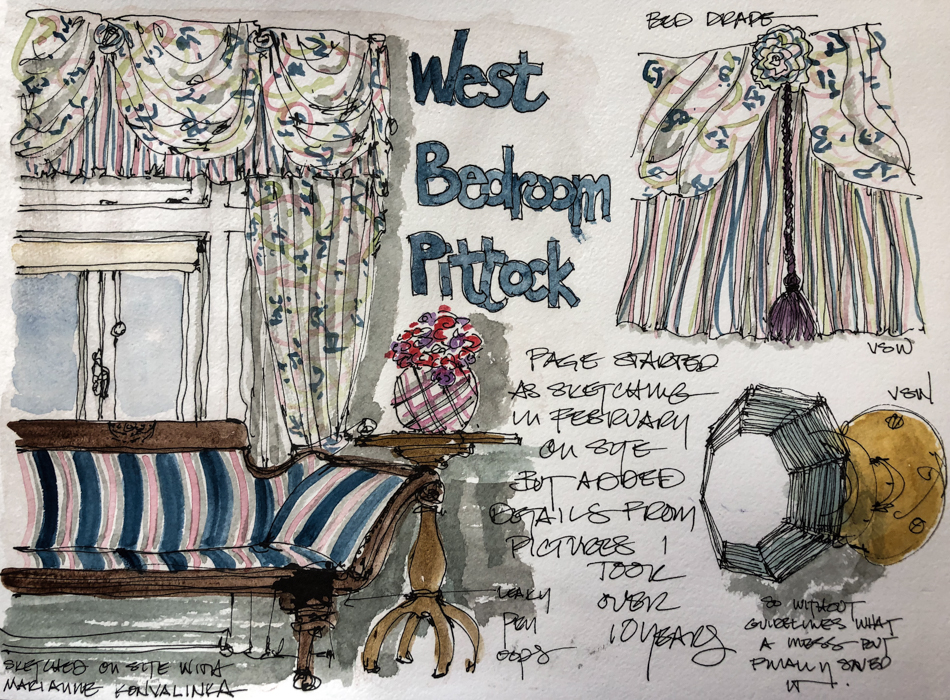 West
Bedroom
Pittock
BED DRAPE
VSW
PAGE STARTED
AS SKETCHING
IN FEBRUARY
ON SITE
BUT ADDED
DETAILS FROM
PICTURES I
TOOK
OVER
10 YEARS
LEAKY
PEN
OOPS
VSW
SO WITHOUT
GUIDELINES WHAT
A MESS BUT
FINALLY SAVED
IT.
SKETCHED ON SITE WITH
MARIANNE KONVALINKA